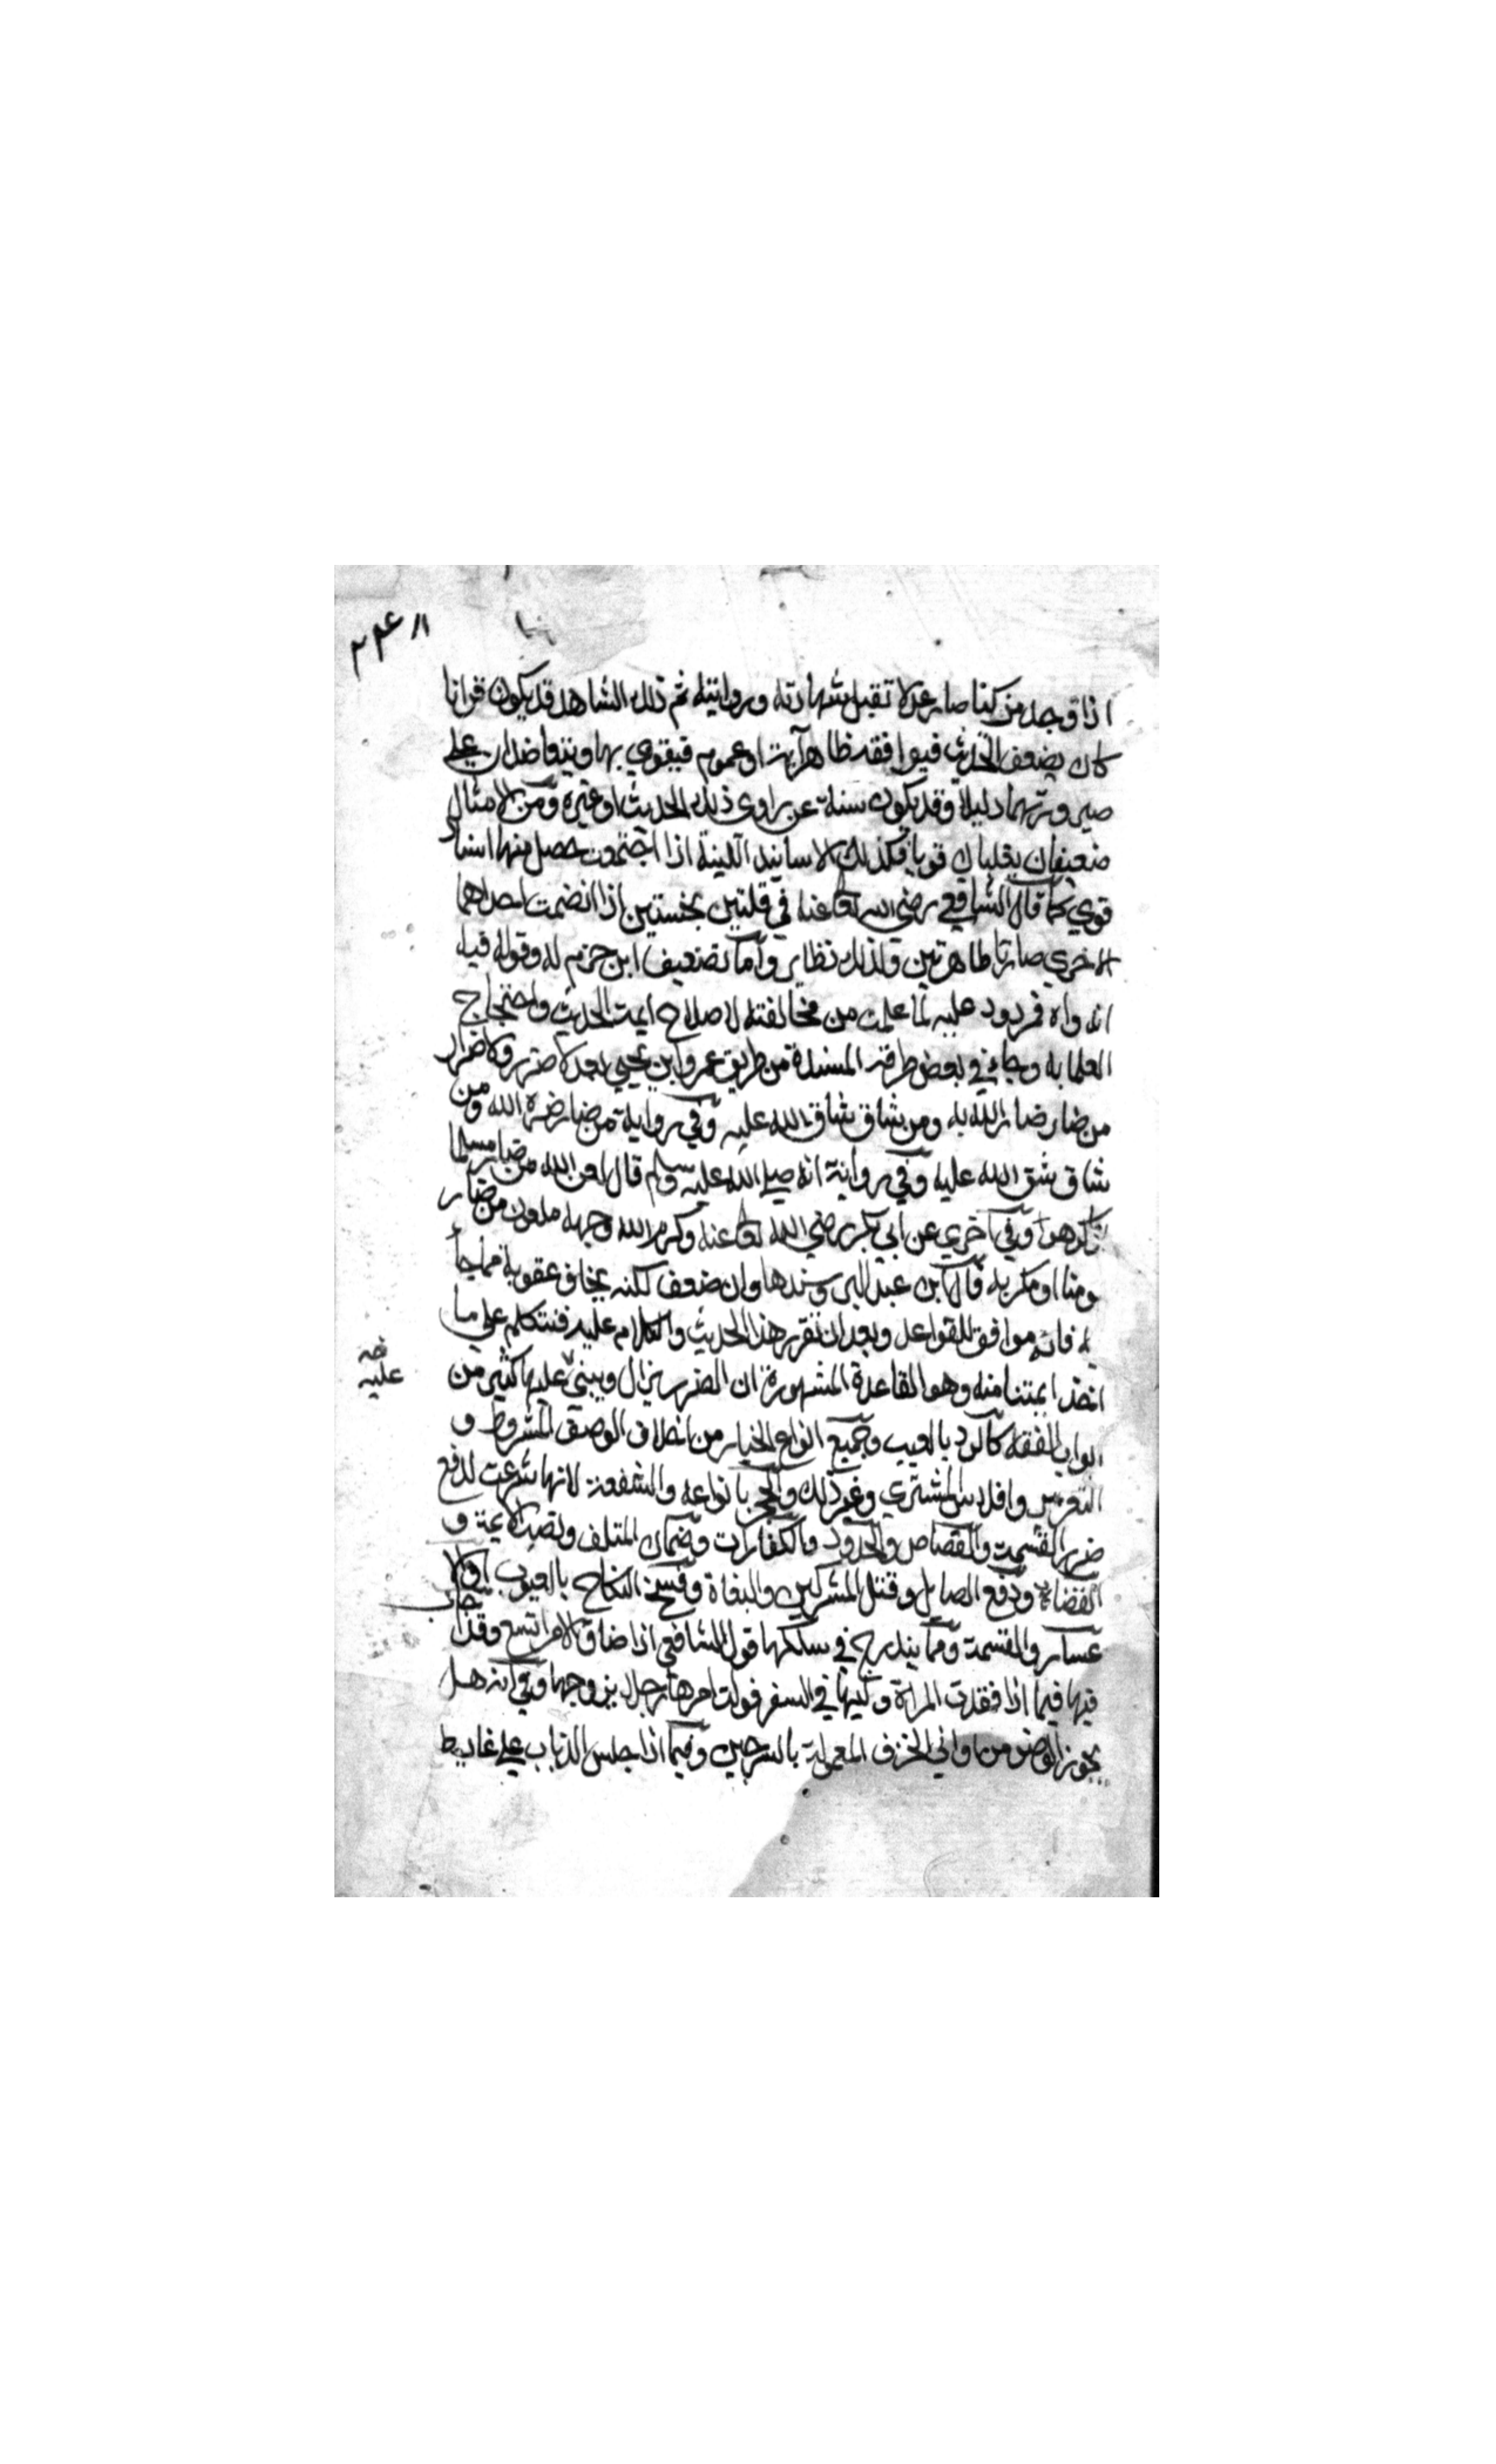 اذا وجد من كنا صار عدلا تقبل شهادته وروايته ثم ذلك الشاهد قد يكون قرانا
كان يضعف الحديث فيوافقه ظاهر آية او عموم فيقوي بها ويتعاضدان على
صيرورتهما دليلا وقد يكون سنة عن راوي ذلك الحديث او غيره ومن الامثال
ضعيفان يغلبان قويا فكذلك الاسانيد اللينة اذا اجتمعت حصل منها اسناد
قوي كما قال الشافعي رضي الله تعا عنه في قلتين نجستين اذا انضمت احداهما
الاخري صارتا طاهرتين ولذلك نظاير وأما تضعيف ابن حزم له وقوله فيه
انه واه فمردود عليه لما علمت من مخالفته لاصلاح ايمة الحديث واحتجاج
العلما به وجاء في بعض طرقه المسندة من طريق عمرو ابن يحيي بعد لا ضرر ولا ضرار
من ضار ضار الله به ومن شاق شاق الله عليه وفي رواية من ضار ضره الله ومن
شاق شق الله عليه وفي رواية انه صلى الله عليه وسلم قال لعن الله من ضار مسلما
وفي اخري عن ابي بكر رضي الله تعا عنه وكرم الله وجهه ملعون من ضار
مومنا او مكر به قال ابن عبد البر وسندها وان ضعف لكنه يخاف عقوبة ما جا
به فانه موافق للقواعد وبعد ان تقرر هذا الحديث والكلام عليه فنتكلم على ما
اخذ ايمتنا منه وهو القاعدة المشهورة ان الضرر يزال ويبني عليها كثير من
ابواب الفقه كالرد بالعيب وجميع انواع الخيار من اخلاف الوصف المشروط و
التعزير وافلاس المشتري وغير ذلك والحجر بانواعه والشفعة لانها شرعت لدفع
ضرر القسمة والقصاص والحدود والكفارات وضمان المتلف ونصب الايمة و
القضاة ودفع الصايل وقتل المشركين والبغاة وفسخ النكاح بالعيوب او الا
عسار والقسمة ومما يندرج في سلكها قول الشافعي اذا ضاق الامر اتسع وقد اجاب
فيها فيما اذا فقدت المراة وليها في السفر فولت امرها رجلا يزوجها وفي انه هل
يجوز الوضو من اواني الخزف المعمولة بالسرجين وفيما اذا جلس الذباب على غايط
نصه
عليه